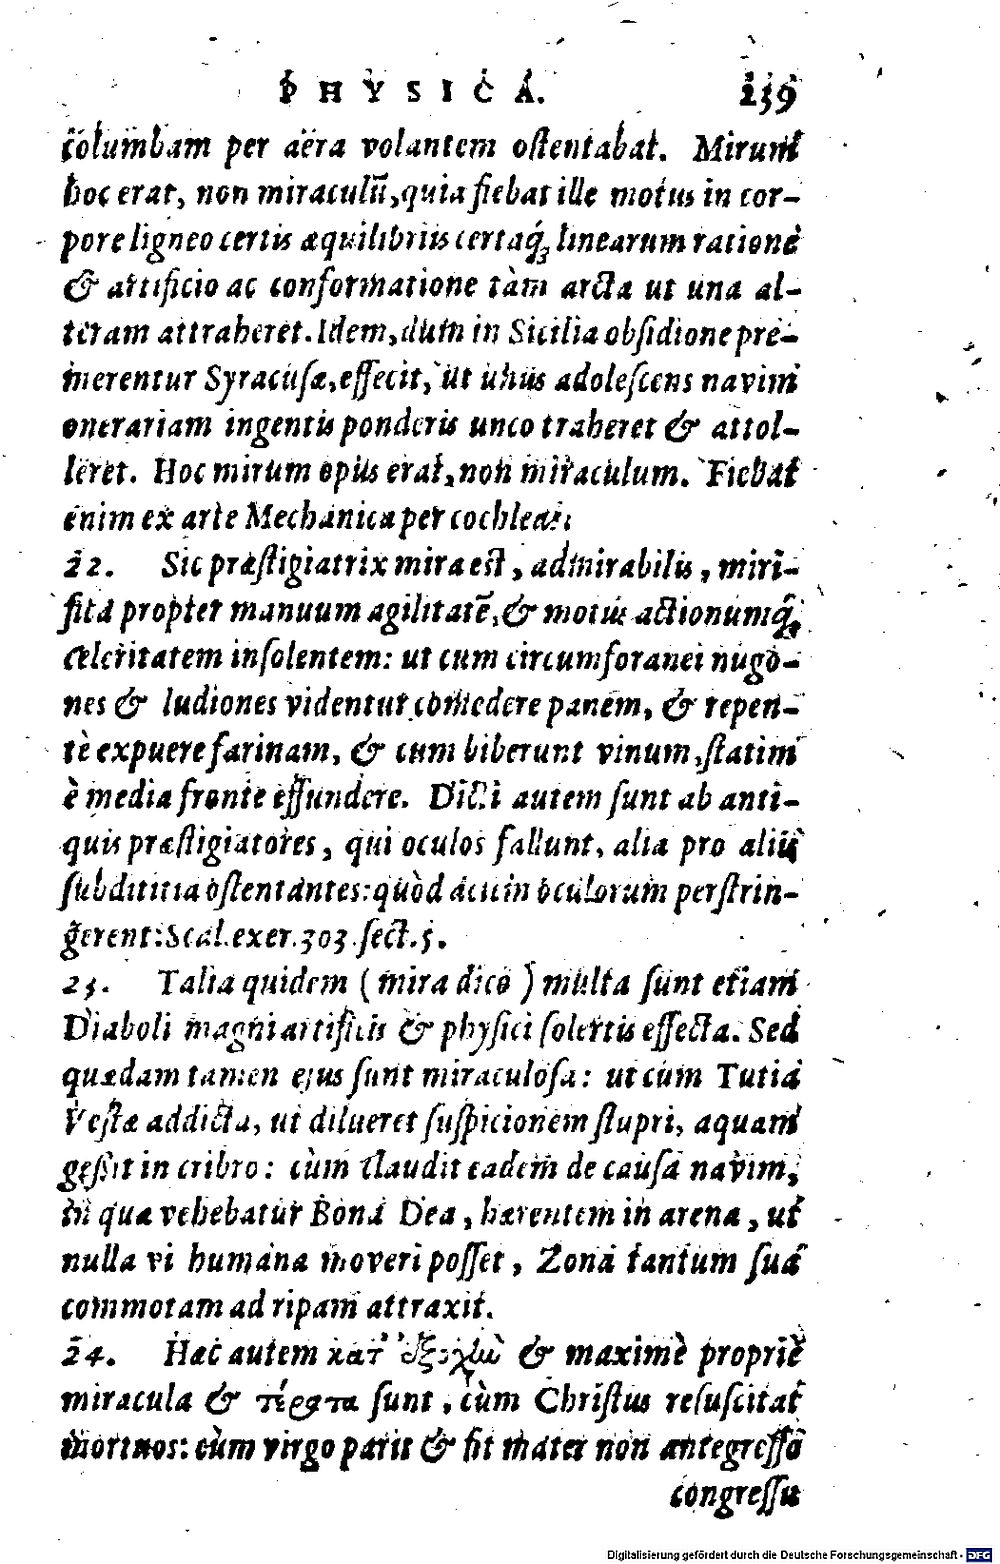 PHYSICA. 239
columbam per aëra volantem ostentabat. Mirum
hoc erat, non miraculũ, quia fiebat ille motus in cor-
pore ligneo certis æquilibriis certaq́; linearum ratione
& artificio ac conformatione tàm arcta ut una al-
teram attraheret. Idem, dum in Sicilia obsidione pre-
merentur Syracusæ, effecit, ut unus adolescens navim
onerariam ingentis ponderis unco traheret & attol-
leret. Hoc mirum opus erat, non miraculum. Fiebat
enim ex arte Mechanica per cochleam
22. Sic præstigiatrix mira est, admirabilis, miri-
fica propter manuum agilitatẽ, & motus actionumq́;
celeritatem insolentem: ut cum circumforanei nugo-
nes & ludiones videntur comedere panem, & repen-
tè expuere farinam, & cum biberunt vinum, statim
è media fronte effundere. Dicti autem sunt ab anti-
quis præstigiatores, qui oculos fallunt, alia pro aliis
subdititia ostentantes: quòd aciem oculorum perstrin-
gerent: Scal. exer. 303. sect. 5.
23. Talia quidem ( mira dico ) multa sunt etiam
Diaboli magni artificis & physici solertis effecta. Sed
quædam tamen ejus sunt miraculosa: ut cum Tutia
Vestæ addicta, ut dilueret suspicionem stupri, aquam
gessit in cribro: cùm Claudit eadem de causa navim,
in qua vehebatur Bona Dea, hærentem in arena, ut
nulla vi humana moveri posset, Zona tantum sua
commotam ad ripam attraxit.
24. Hac autem κατ' ἐξοχὴν & maximè propriè
miracula & τέρατα sunt, cùm Christus resuscitat
mortuos: cùm virgo parit & fit mater non antegresso
congressu
Digitalisierung gefördert durch die Deutsche Forschungsgemeinschaft - DFG